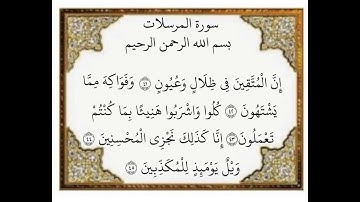 سورة المرسلات
بسم الله الرحمن الرحيم
إِنَّ الْمُتَّقِينَ فِي ظِلَالٍ وَعُيُونٍ ﴿٤١﴾ وَفَوَاكِهَ مِمَّا
يَشْتَهُونَ ﴿٤٢﴾ كُلُوا وَاشْرَبُوا هَنِيئًا بِمَا كُنْتُمْ
تَعْمَلُونَ ﴿٤٣﴾ إِنَّا كَذَلِكَ نَجْزِي الْمُحْسِنِينَ ﴿٤٤﴾
وَيْلٌ يَوْمَئِذٍ لِلْمُكَذِّبِينَ ﴿٤٥﴾